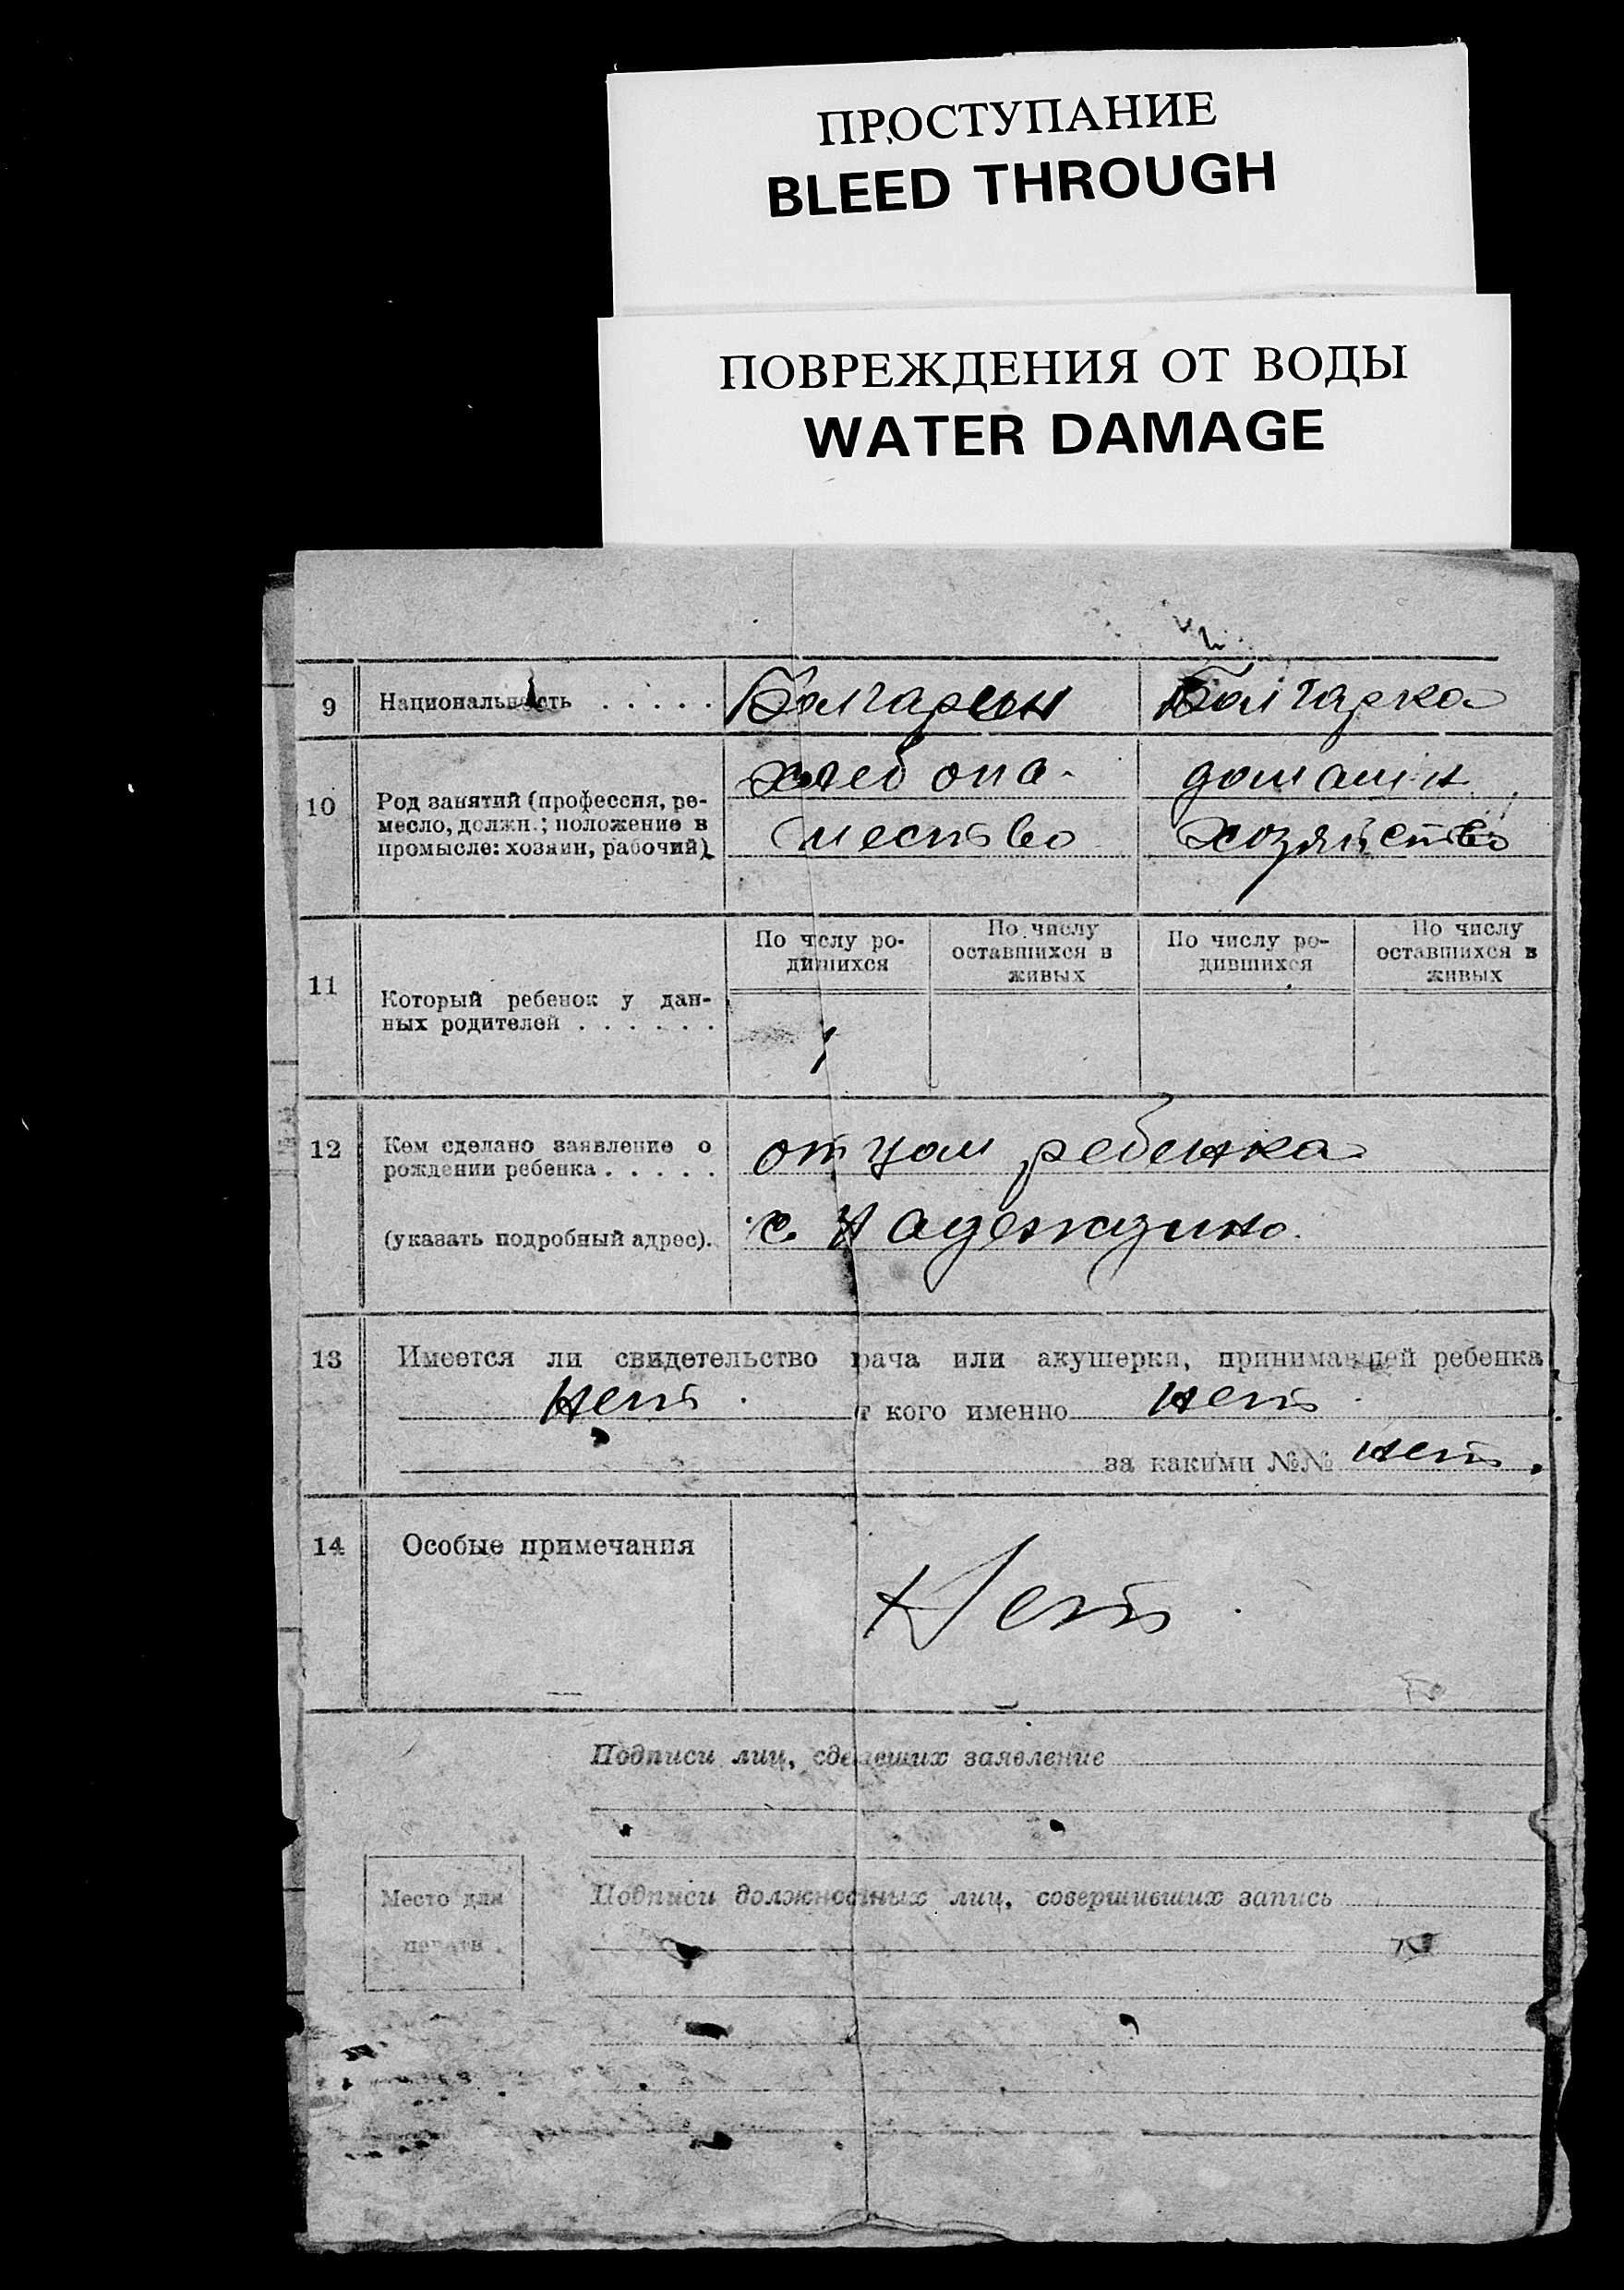 ПРОСТУПАНИЕ
BLEED THROUGH
ПОВРЕЖДЕНИЯ ОТ ВОДЫ
WATER DAMAGE
9 Национальность . . . . . Болгарин Болгарка
10 Род занятий (профессия, ре-
месло, должн.; положение в
промысле: хозяин, рабочий)
хлебопа-
шество
домашн.
хозяйство
11 Который ребенок у дан-
ных родителей . . . . . .
По числу ро-
дившихся
По числу
оставшихся в
живых
По числу ро-
дившихся
По числу
оставшихся в
живых
1
12 Кем сделано заявление о
рождении ребенка . . . . .
отцом ребенка
(указать подробный адрес). с. Надеждино.
13 Имеется ли свидетельство врача или акушерки, принимавшей ребенка
нет. от кого именно нет.
за какими №№ нет.
14 Особые примечания
Нет.
Подписи лиц, сделавших заявление
Место для
печати.
Подписи должностных лиц, совершивших запись